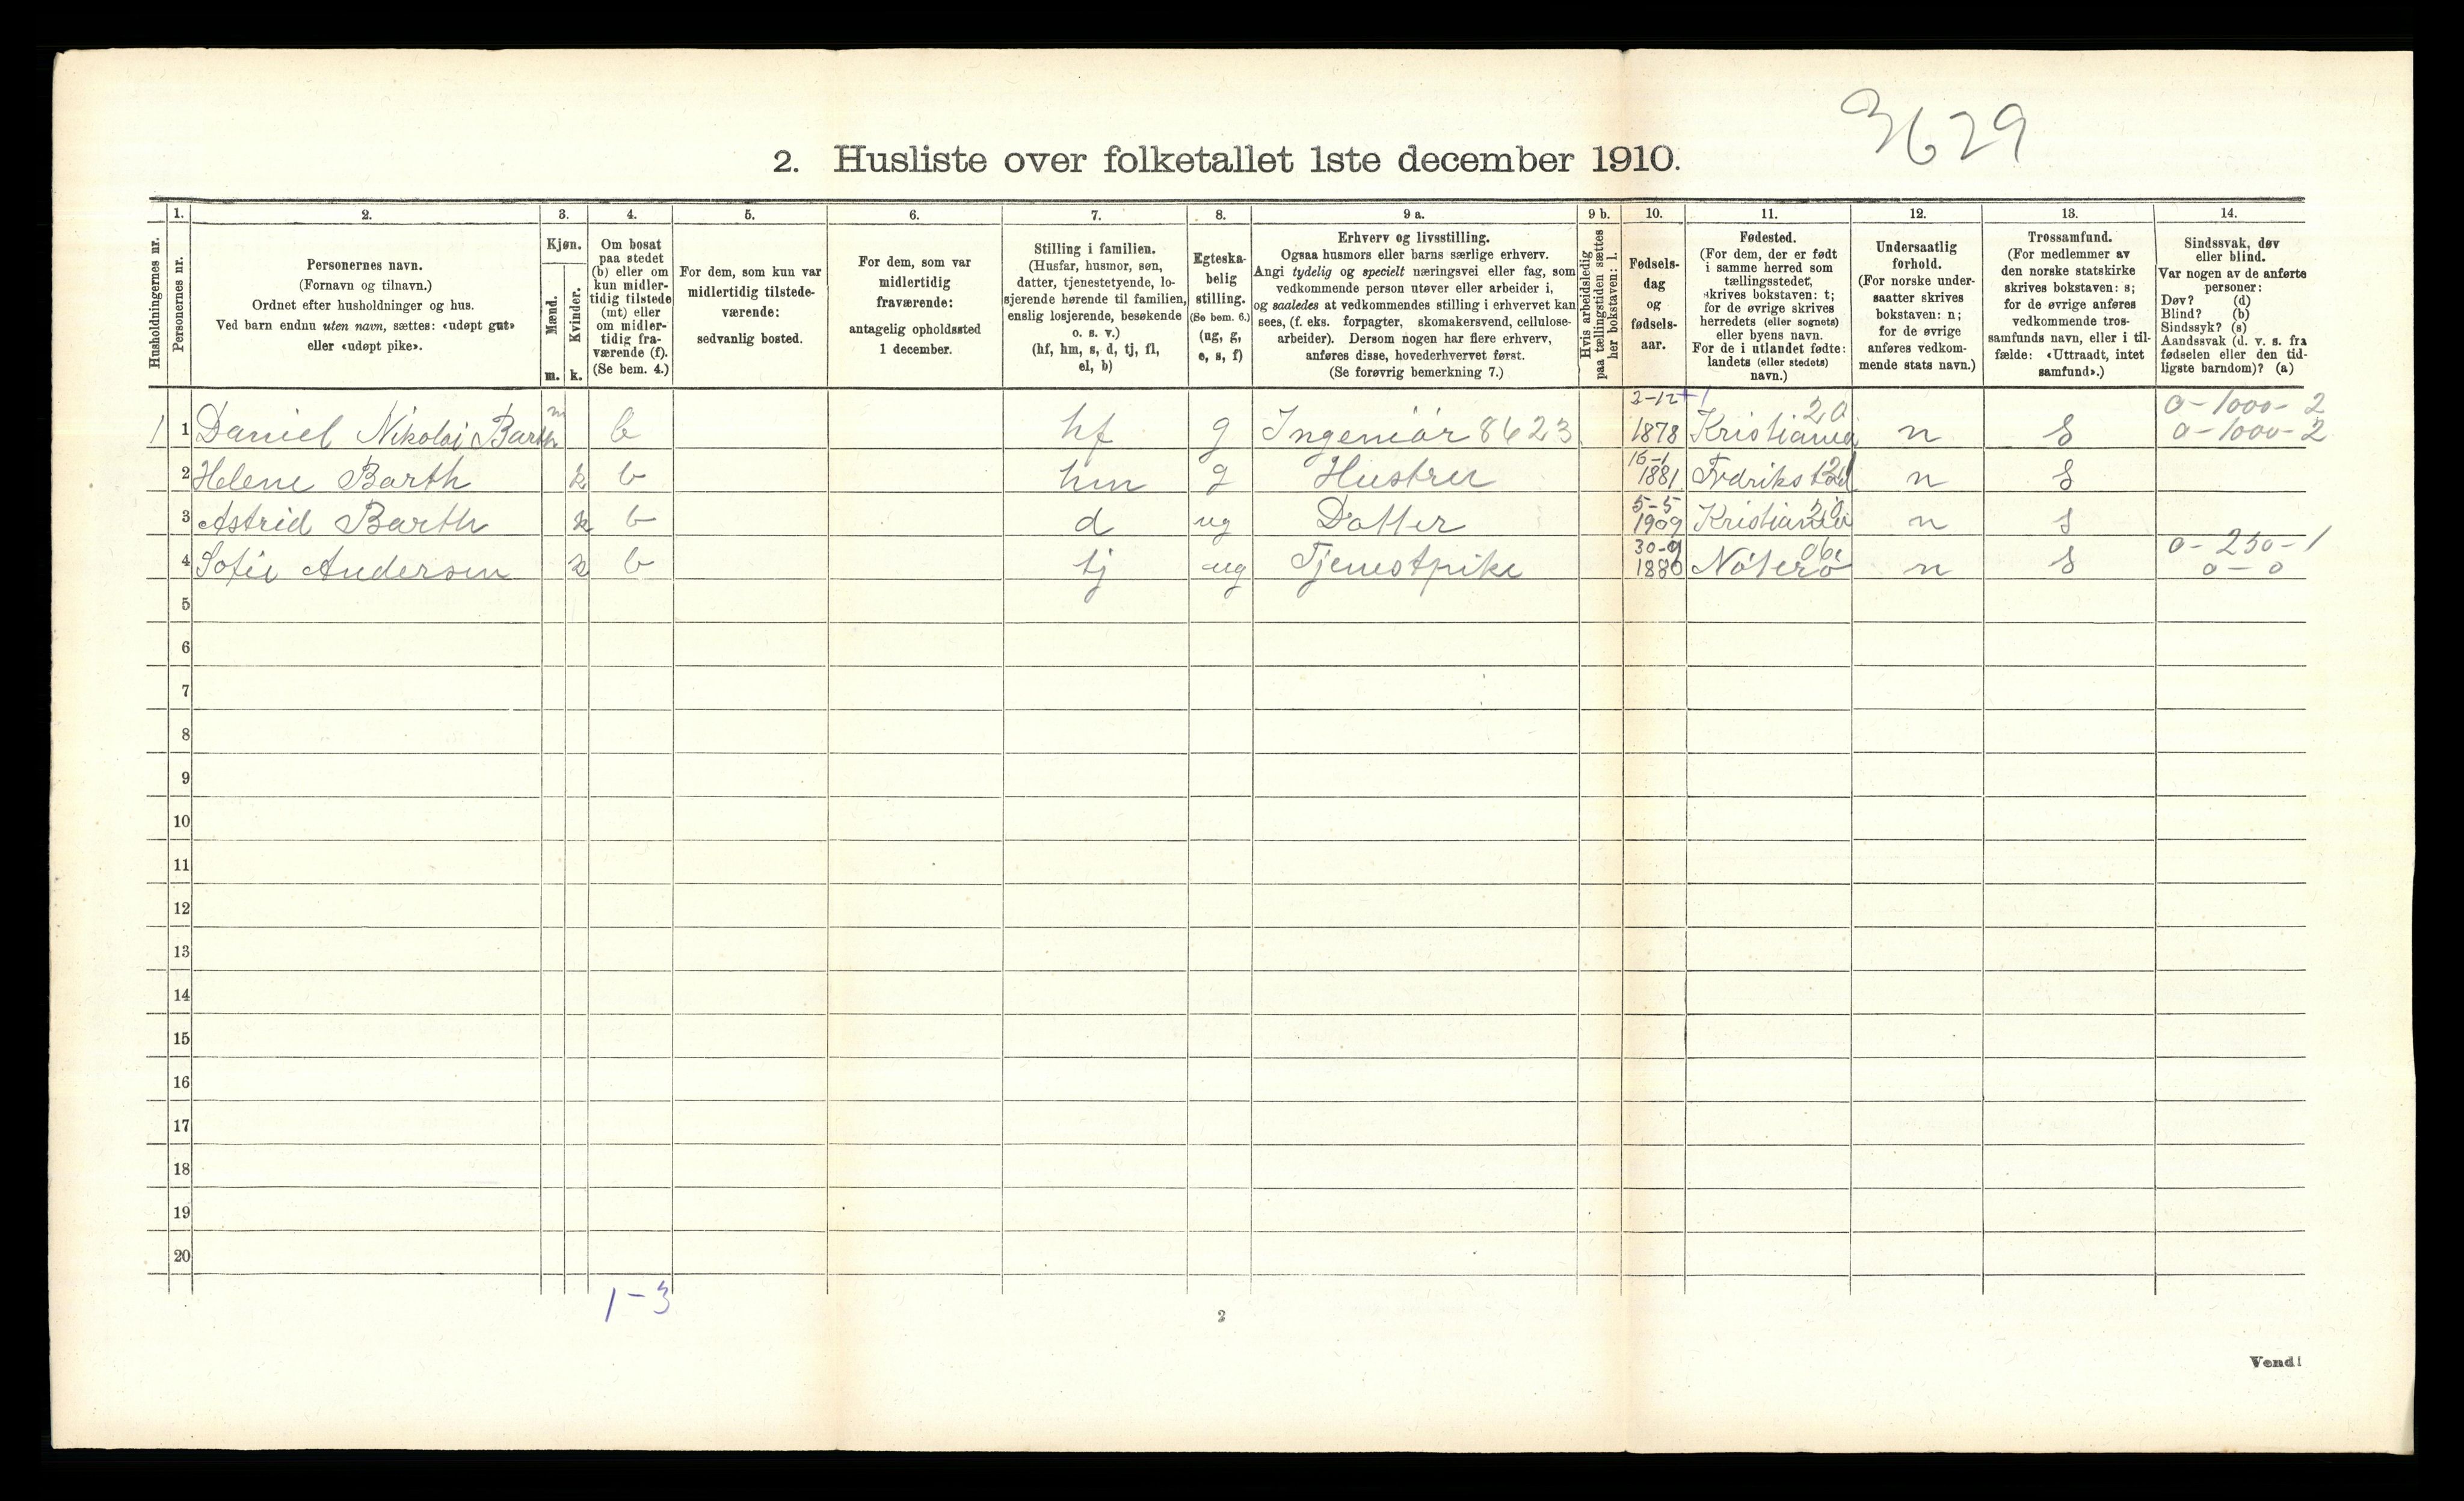 3629
2. Husliste over folketallet 1ste december 1910.
Husholdningernes nr.
1.
Personernes nr.
2.
Personernes navn.
(Fornavn og tilnavn.)
Ordnet efter husholdninger og hus.
Ved barn endnu uten navn, sættes: «udøpt gut»
eller «udøpt pike».
3.
Kjøn.
Mænd.
Kvinder.
m. k.
4.
Om bosat
paa stedet
(b) eller om
kun midler-
tidig tilstede
(mt) eller
om midler-
tidig fra-
værende (f).
(Se bem. 4.)
5.
For dem, som kun var
midlertidig tilstede-
værende:
sedvanlig bosted.
6.
For dem, som var
midlertidig
fraværende:
antagelig opholdssted
1 december.
7.
Stilling i familien.
(Husfar, husmor, søn,
datter, tjenestetyende, lo-
sjerende hørende til familien,
enslig losjerende, besøkende
o. s. v.)
(hf, hm, s, d, tj, fl,
el, b)
8.
Egteska-
belig
stilling.
(Se bem. 6.)
(ug, g,
e, s, f)
9 a.
Erhverv og livsstilling.
Ogsaa husmors eller barns særlige erhverv.
Angi tydelig og specielt næringsvei eller fag, som
vedkommende person utøver eller arbeider i,
og saaledes at vedkommendes stilling i erhvervet kan
sees, (f. eks. forpagter, skomakersvend, cellulose-
arbeider). Dersom nogen har flere erhverv,
anføres disse, hovederhvervet først.
(Se forøvrig bemerkning 7.)
9 b.
Hvis arbeidsledig
paa tællingstiden sættes
her bokstaven: l.
10.
Fødsels-
dag
og
fødsels-
aar.
11.
Fødested.
(For dem, der er født
i samme herred som
tællingsstedet,
skrives bokstaven: t;
for de øvrige skrives
herredets (eller sognets)
eller byens navn.
For de i utlandet fødte:
landets (eller stedets)
navn.)
12.
Undersaatlig
forhold.
(For norske under-
saatter skrives
bokstaven: n;
for de øvrige
anføres vedkom-
mende stats navn.)
13.
Trossamfund.
(For medlemmer av
den norske statskirke
skrives bokstaven: s;
for de øvrige anføres
vedkommende tros-
samfunds navn, eller i til-
fælde: «Uttraadt, intet
samfund».)
14.
Sindssvak, døv
eller blind.
Var nogen av de anførte
personer:
Døv? (d)
Blind? (b)
Sindssyk? (s)
Aandssvak (d. v. s. fra
fødselen eller den tid-
ligste barndom)? (a)
2-12 20 0-1000-2
1 1 Daniel Nikolai Barth m b hf g Ingeniør 8623 1878 Kristiania n s 0-1000-2
16-1
2 Helene Barth k b hm g Hustru 1881 Fredrikstad n s
5-5 20
3 Astrid Barth k b d ug Datter 1909 Kristiania n s
30-9 06 0-250-1
4 Sofie Andersen k b tj ug Tjenestpike 1880 Nøterø n s 0-0
5
6
7
8
9
10
11
12
13
14
15
16
17
18
19
20
1-3
2
Vend!